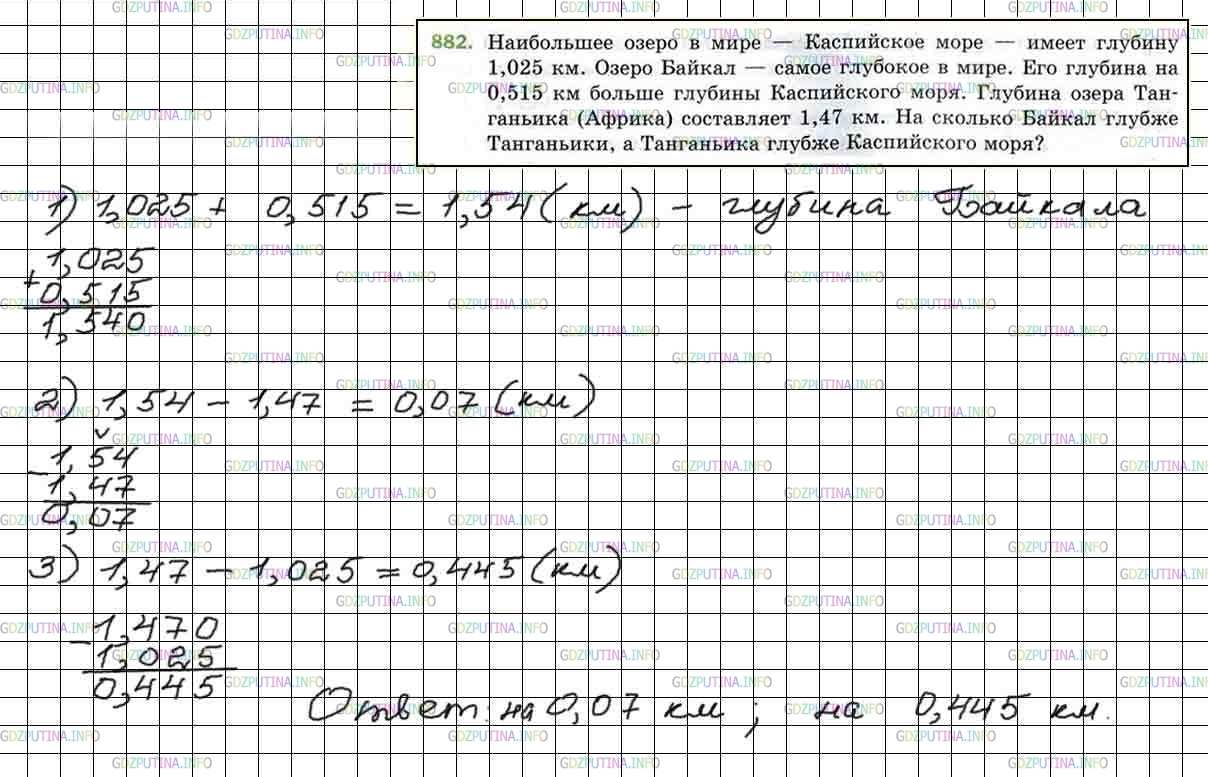 882. Наибольшее озеро в мире — Каспийское море — имеет глубину
1,025 км. Озеро Байкал — самое глубокое в мире. Его глубина на
0,515 км больше глубины Каспийского моря. Глубина озера Тан-
ганьика (Африка) составляет 1,47 км. На сколько Байкал глубже
Танганьики, а Танганьика глубже Каспийского моря?
1) 1,025 + 0,515 = 1,54 (км) - глубина Байкала
1,025
+
0,515
1,540
2) 1,54 - 1,47 = 0,07 (км)
1,54
-
1,47
0,07
3) 1,47 - 1,025 = 0,445 (км)
1,470
-
1,025
0,445
Ответ: на 0,07 км ; на 0,445 км.
GDZPUTINA.INFO